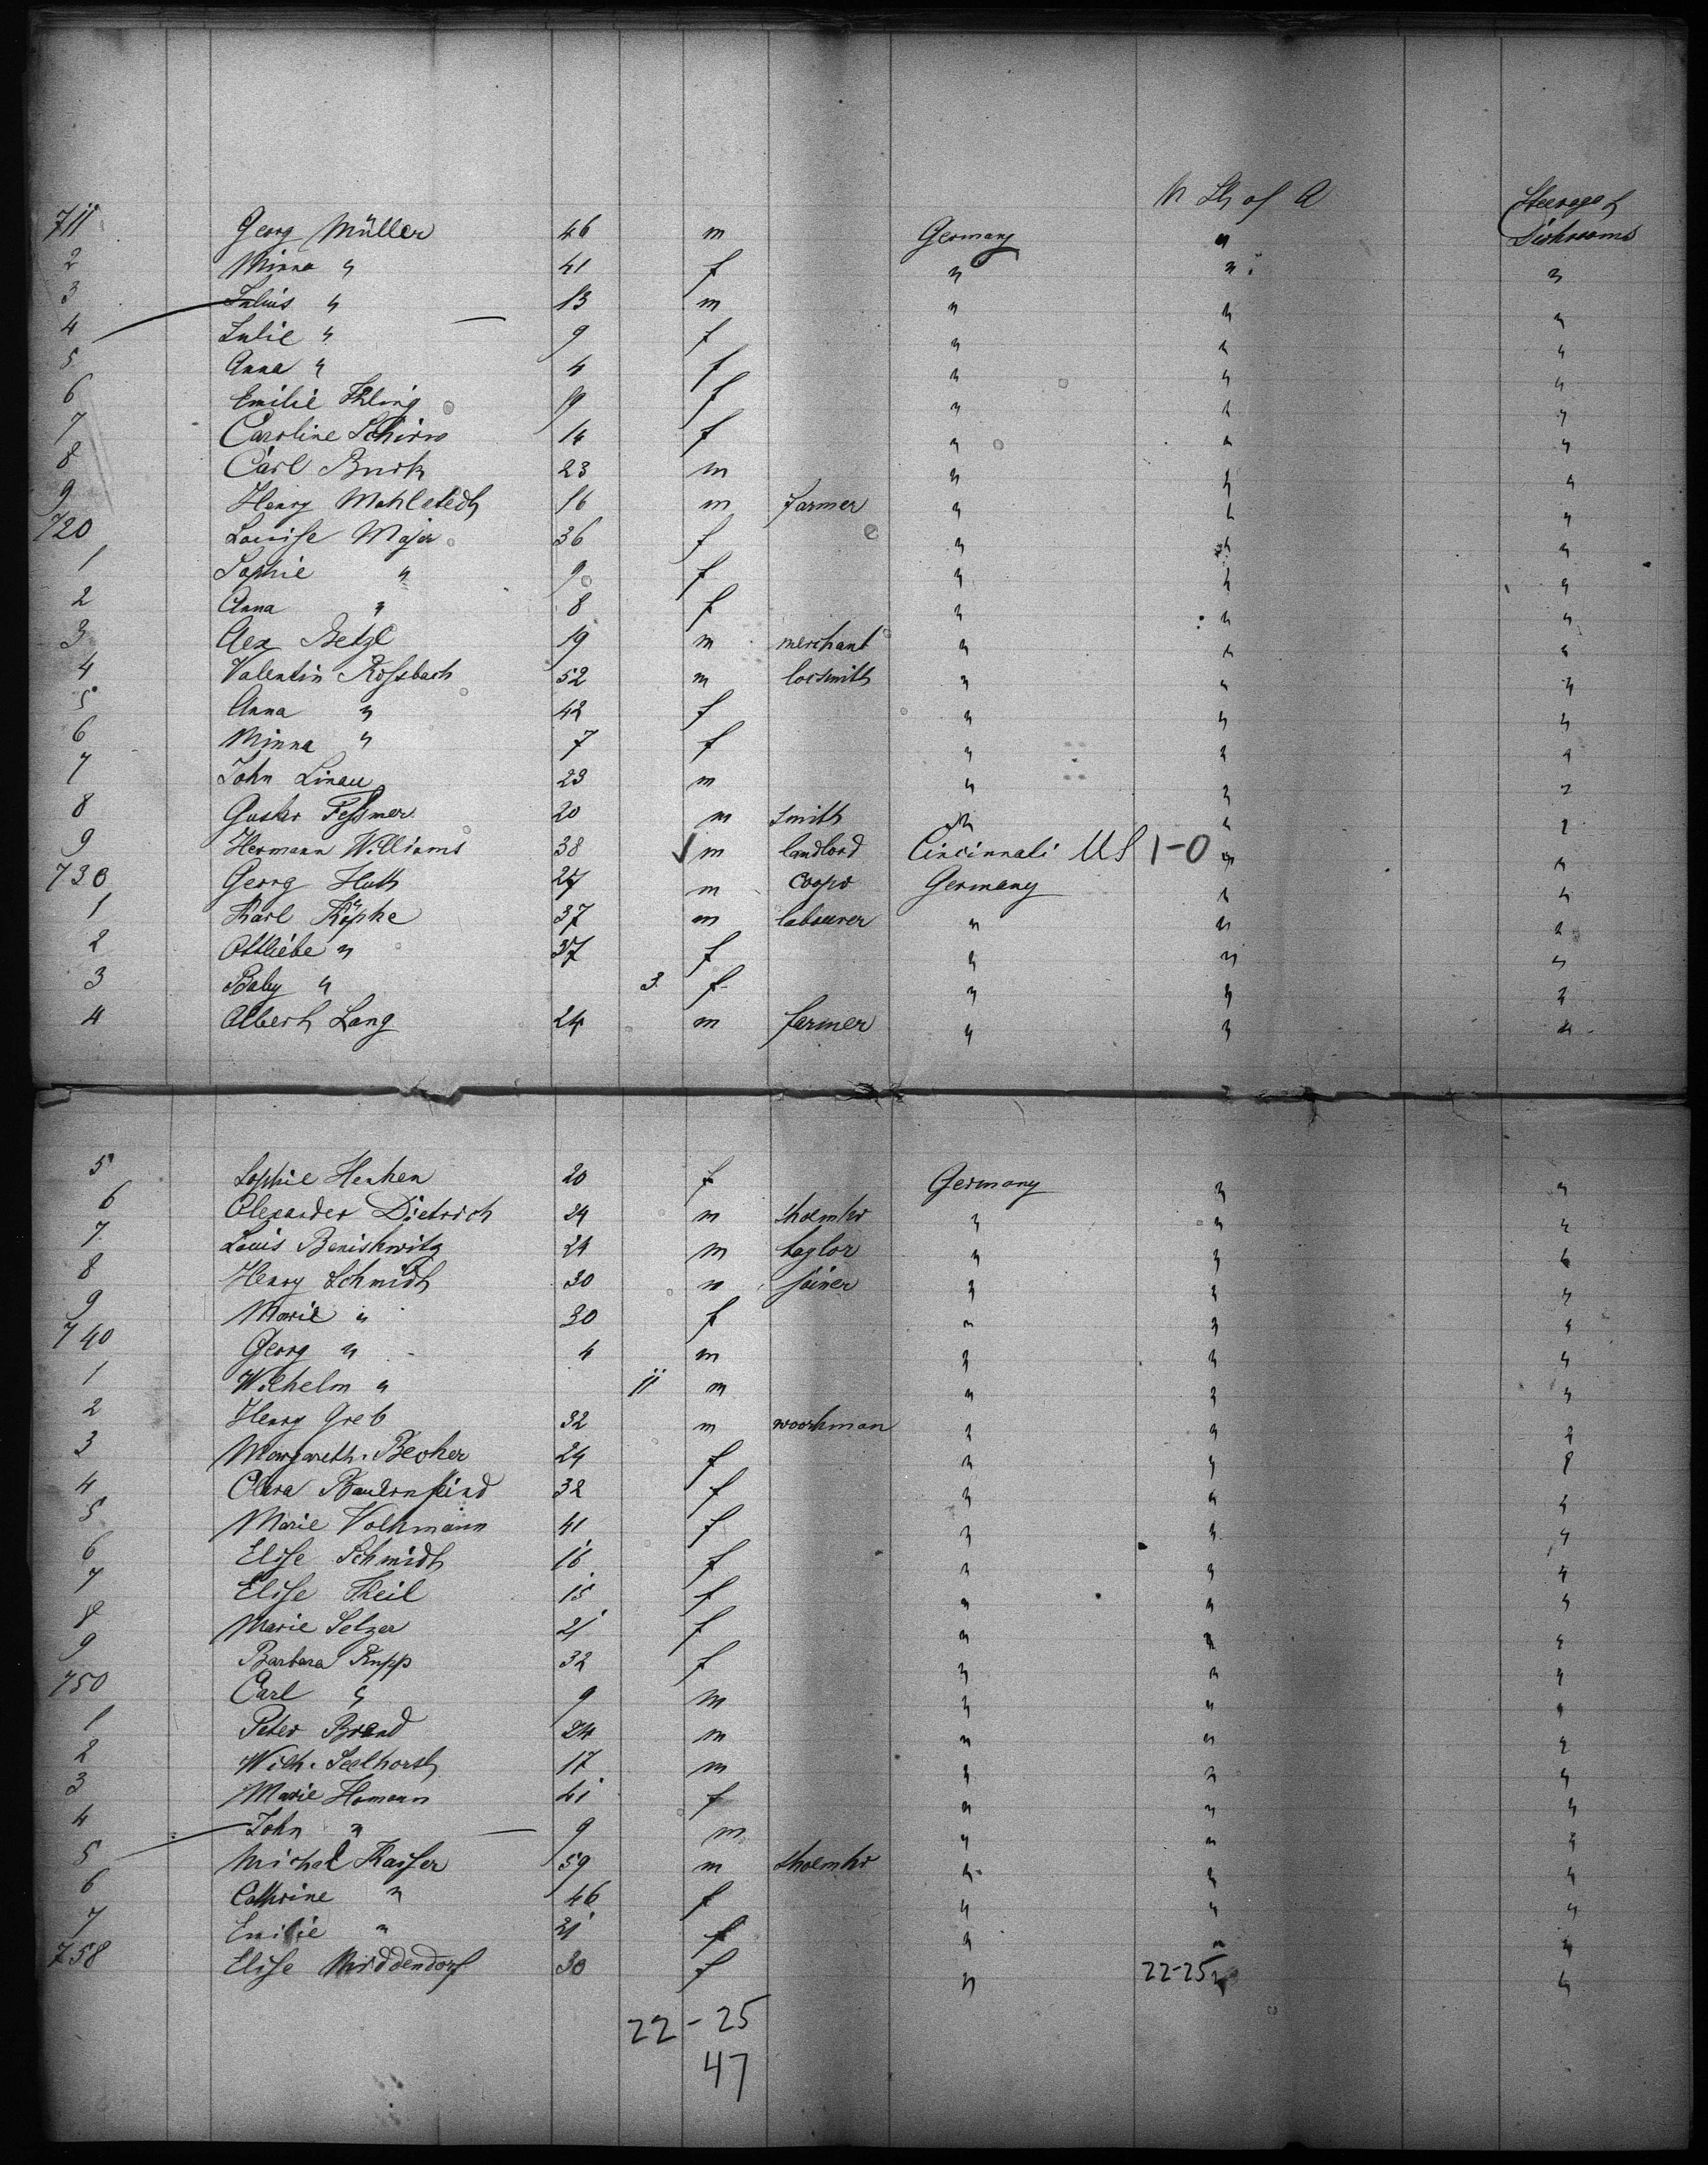 U St of A Steerage &
711 Georg Müller 46 m Germany " Sickrooms
2 Minna " 41 f " " "
3 Julius " 13 m " " "
4 Julie " 9 f " " "
5 Anna " 4 f " " "
6 Emilie 19 f " " "
7 Caroline 14 f " " "
8 Carl 23 m " " "
9 Henry Mahlstedt 16 m farmer " " "
720 Louise Majer 36 f " " "
1 Sophie " 9 f " " "
2 Anna " 8 f " " "
3 Alex Betzl 19 m merchant " " "
4 Valentin Rossbach 52 m locsmith " " "
5 Anna " 42 f " " "
6 Minna " 7 f " " "
7 John Linau 23 m " " "
8 Gustav Fessmer 20 m smith " " "
9 Hermann Williams 38 m landlord Cincinnati US 1-0 " "
730 Georg Huth 27 m Germany " "
1 Karl Köpke 37 m labourer " " "
2 Ottliebe " 37 f " " "
3 Baby " 3 f " " "
4 Albert Lang 24 m farmer " " "
5 Sophie Henken 20 f Germany " "
6 Alexander Dietrich 24 m " " "
7 Louis Benishwitz 24 m taylor " " "
8 Henry Schmidt 30 m joiner " " "
9 Marie " 30 f " " "
740 Georg " 4 m " " "
1 Wilhelm " 11 m " " "
2 Henry Greb 32 m woorkman " " "
3 Margareth. Becker 24 f " " "
4 Clara Bauernfeind 32 f " " "
5 Marie Volkmann 41 f " " "
6 Elise Schmidt 16 f " " "
7 Elise Theil 15 f " " "
8 Marie Selzer 21 f " " "
9 Barbara Rupp 32 f " " "
750 Carl " 9 m " " "
1 Peter Brand 24 m " " "
2 Wilh. Seelhorst 17 m " " "
3 Marie Homann 41 f " " "
4 John " 9 m " " "
5 Michal Kaiser 59 m " " "
6 Cathrine " 46 f " " "
7 Emilie " 21 f " " "
758 Elise Middendorf 30 f " 22-25 " "
22-25
47